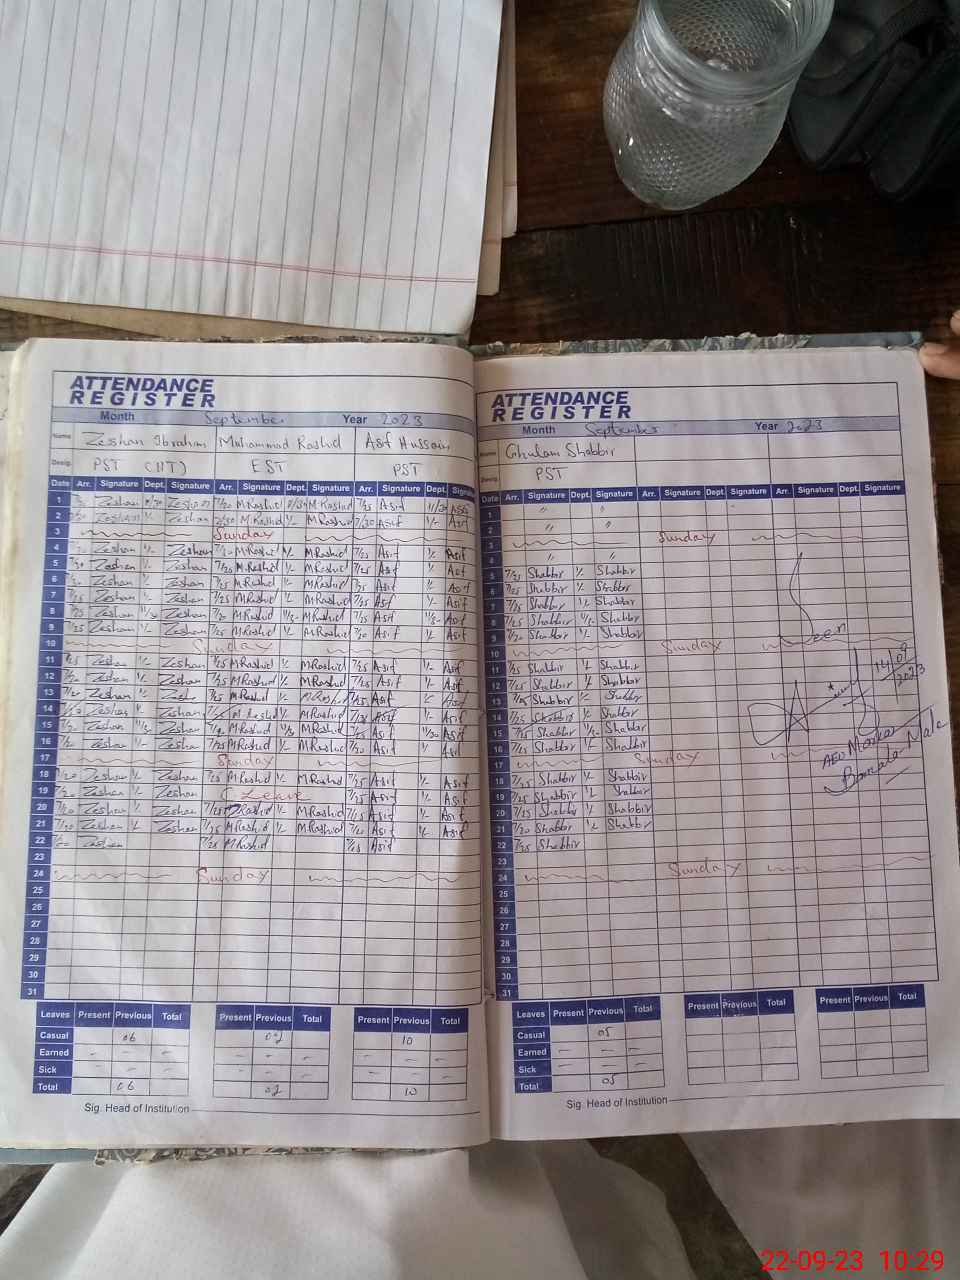 ATTENDANCE
REGISTER
Month September Year 2023
Name Zeshan Ibrahim Muhammad Rashid Asif Hussain
Desig. PST (HT) EST PST
Date Arr. Signature Dept. Signature Arr. Signature Dept. Signature Arr. Signature Dept. Signature
1 Zeshan Zeshan 7/20 M Rashid M Rashid 7/25 Asif 11/30 Asif
2 Zeshan Zeshan 7/30 M Rashid M Rashid 7/30 Asif Asif
3 Sunday
4 Zeshan Zeshan M Rashid M Rashid 7/25 Asif Asif
5 Zeshan Zeshan 7/20 M Rashid M Rashid 7/25 Asif Asif
6 Zeshan Zeshan 7/25 M Rashid M Rashid 7/25 Asif Asif
7 Zeshan Zeshan 7/25 M Rashid M Rashid 7/25 Asif Asif
8 7/25 Zeshan Zeshan M Rashid M Rashid 7/25 Asif Asif
9 7/25 Zeshan Zeshan 7/25 M Rashid M Rashid 7/20 Asif Asif
10 Sunday
11 7/25 Zeshan Zeshan 7/25 M Rashid M Rashid 7/25 Asif Asif
12 7/20 Zeshan Zeshan 7/25 M Rashid M Rashid 7/25 Asif Asif
13 Zeshan 7/25 M Rashid 7/25 Asif Asif
14 Zeshan Zeshan M Rashid M Rashid Asif Asif
15 7/20 Zeshan Zeshan M Rashid M Rashid 7/25 Asif 11/30 Asif
16 7/20 Zeshan Zeshan 7/25 M Rashid M Rashid 7/20 Asif Asif
17 Sunday
18 7/20 Zeshan Zeshan 7/25 M Rashid M Rashid 7/25 Asif Asif
19 Zeshan Zeshan C Leave 7/25 Asif Asif
20 7/20 Zeshan Zeshan 7/25 Rashid M Rashid 7/25 Asif Asif
21 7/20 Zeshan Zeshan 7/25 M Rashid M Rashid Asif Asif
22 Zeshan 7/25 M Rashid Asif
23
24 Sunday
25
26
27
28
29
30
31
Leaves Present Previous Total Present Previous Total Present Previous Total
Casual 06 02 10
Earned – – – – – – – – –
Sick – – – – – – – – –
Total 06 02 10
Sig. Head of Institution
ATTENDANCE
REGISTER
Month September Year 2023
Name Ghulam Shabbir
Desig. PST
Date Arr. Signature Dept. Signature Arr. Signature Dept. Signature Arr. Signature Dept. Signature
1 " "
2 " "
3 Sunday
4 " "
5 7/25 Shabbir Shabbir
6 7/25 Shabbir Shabbir
7 7/25 Shabbir Shabbir
8 7/25 Shabbir Shabbir
9 7/20 Shabbir Shabbir
Seen
10 Sunday
11 7/25 Shabbir Shabbir
12 7/25 Shabbir Shabbir
13 7/25 Shabbir Shabbir
14 7/25 Shabbir Shabbir
15 7/25 Shabbir Shabbir
16 7/25 Shabbir Shabbir
14/09
2023
AEO Markaz
Barnala-Male
17 Sunday
18 7/25 Shabbir Shabbir
19 7/25 Shabbir Shabbir
20 7/25 Shabbir Shabbir
21 7/20 Shabbir Shabbir
22 7/25 Shabbir
23
24 Sunday
25
26
27
28
29
30
31
Leaves Present Previous Total Present Previous Total Present Previous Total
Casual 05
Earned – – –
Sick – – –
Total 05
Sig. Head of Institution
22-09-23 10:29